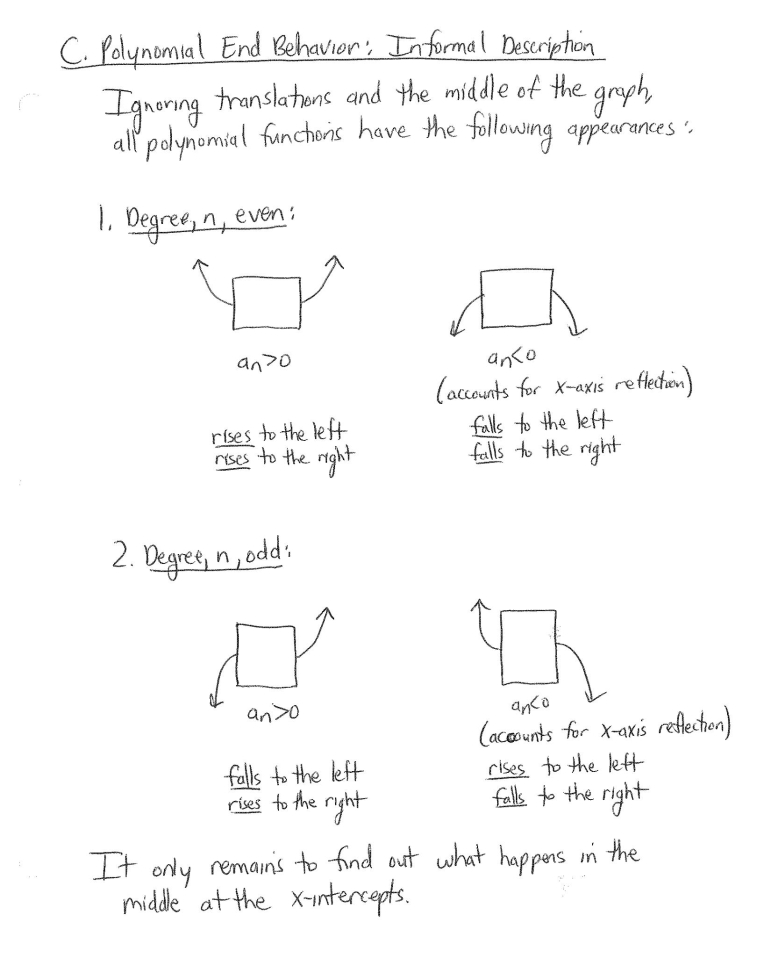 C. Polynomial End Behavior: Informal Description
Ignoring translations and the middle of the graph,
all polynomial functions have the following appearances:
1. Degree, n, even:
an>0
an<0
(accounts for x-axis reflection)
rises to the left
rises to the right
falls to the left
falls to the right
2. Degree, n, odd:
an>0
an<0
(accounts for x-axis reflection)
falls to the left
rises to the right
rises to the left
falls to the right
It only remains to find out what happens in the
middle at the x-intercepts.